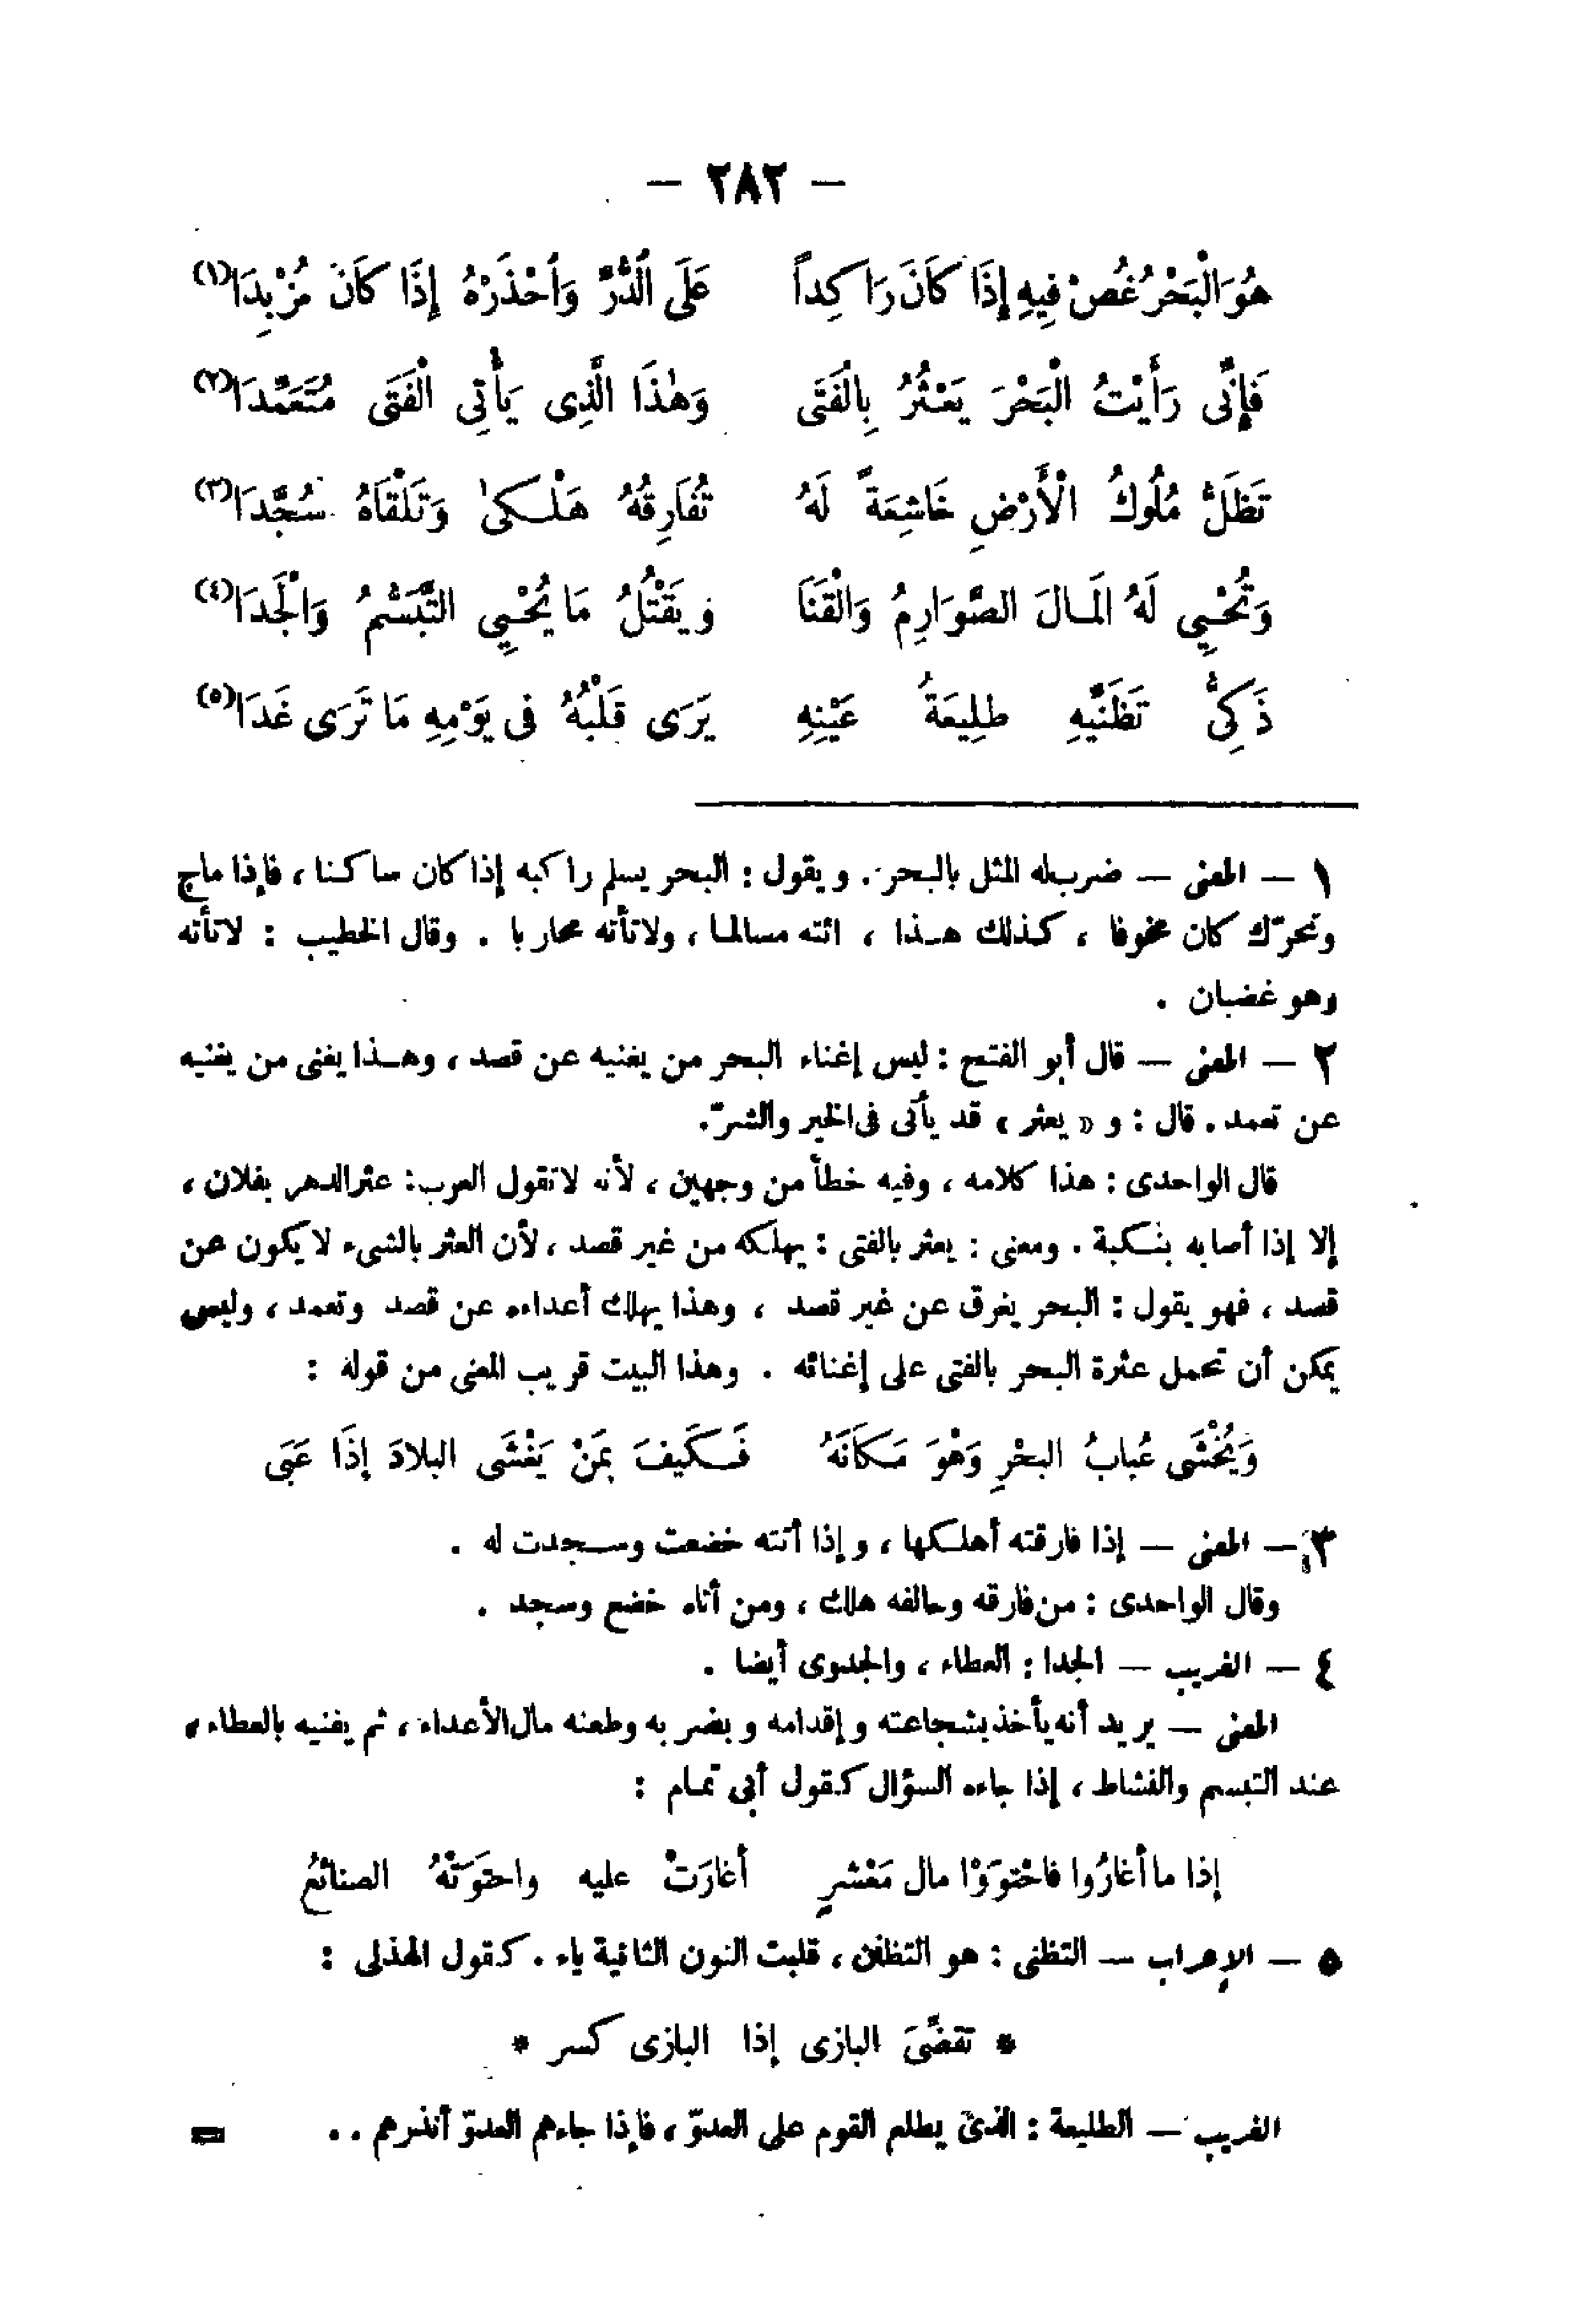 — ٢٨٢ —
هُوَ الْبَحْرُ غُصْ فِيهِ إِذَا كَانَ رَاكِداً عَلَى الدُّرِّ وَاُحْذَرْهُ إِذَا كَانَ مُزْبِدَا(١)
فَإِنِّى رَأَيْتُ الْبَحْرَ يَعْثُرُ بِالْفَتَى وَهٰذَا الَّذِى يَأْتِى الْفَتَى مُتَعَمِّدَا(٢)
تَظَلُّ مُلُوكُ الْأَرْضِ خَاشِعَةً لَهُ تُفَارِقُهُ هَلْكىٰ وَتَلْقَاهُ سُجَّدَا(٣)
وَتُحْيِي لَهُ الْمَالَ الصَّوَارِمُ وَالْقَنَا وَيَقْتُلُ مَا يُحْيِي التَّبَسُّمُ وَالْجَدَا(٤)
ذَكِىٌّ تَظَنِّيهِ طلِيعَةُ عَيْنِهِ يَرَى قَلْبُهُ فى يَوْمِهِ مَا تَرَى غَدَا(٥)
١ — المعنى — ضرب له المثل بالبحر. ويقول : البحر يسلم راكبه إذا كان ساكنا ، فإذا ماج
وتحرّك كان مخوفا ، كذلك هذا ، ائته مسالما ، ولا تأته محاربا . وقال الخطيب : لا تأته
وهو غضبان .
٢ — المعنى — قال أبو الفتح : ليس إغناء البحر من يغنيه عن قصد ، وهذا يغنى من يغنيه
عن تعمد . قال : و « يعثر » قد يأتى فى الخير والشرّ.
قال الواحدى : هذا كلامه ، وفيه خطأ من وجهين ، لأنه لا تقول العرب : عثر الدهر بفلان ،
إلا إذا أصابه بنكبة . ومعنى : يعثر بالفتى : يهلكه من غير قصد ، لأن العثر بالشىء لا يكون عن
قصد ، فهو يقول : البحر يغرق عن غير قصد ، وهذا يهلك أعداءه عن قصد وتعمد ، وليس
يمكن أن تحمل عثرة البحر بالفتى على إغنائه . وهذا البيت قريب المعنى من قوله :
وَيُخْشَى عُبابُ البحْرِ وَهْوَ مَكَانَهُ فَكَيفَ بِمَنْ يَغْشَى البلادَ إذَا عَبَى
٣ — المعنى — إذا فارقته أهلكها ، وإذا أتته خضعت وسجدت له .
وقال الواحدى : من فارقه وخالفه هلك ، ومن أتاه خضع وسجد .
٤ — الغريب — الجدا : العطاء ، والجدوى أيضا .
المعنى — يريد أنه يأخذ بشجاعته وإقدامه وبضربه وطعنه مال الأعداء ، ثم يفنيه بالعطاء ،
عند التبسم والنشاط ، إذا جاءه السؤال كقول أبى تمام :
إذا ما أغارُوا فاحْتوَوْا مال مَعْشرٍ أغارَتْ عليه واحتوَتْهُ الصنائعُ
٥ — الإعراب — التظنى : هو التظنن ، قلبت النون الثانية ياء . كقول الهذلى :
* تقضِّىَ البازى إذا البازى كسر *
الغريب — الطليعة : الذى يطلع القوم على العدوّ ، فإذا جاءهم العدوّ أنذرهم . . =